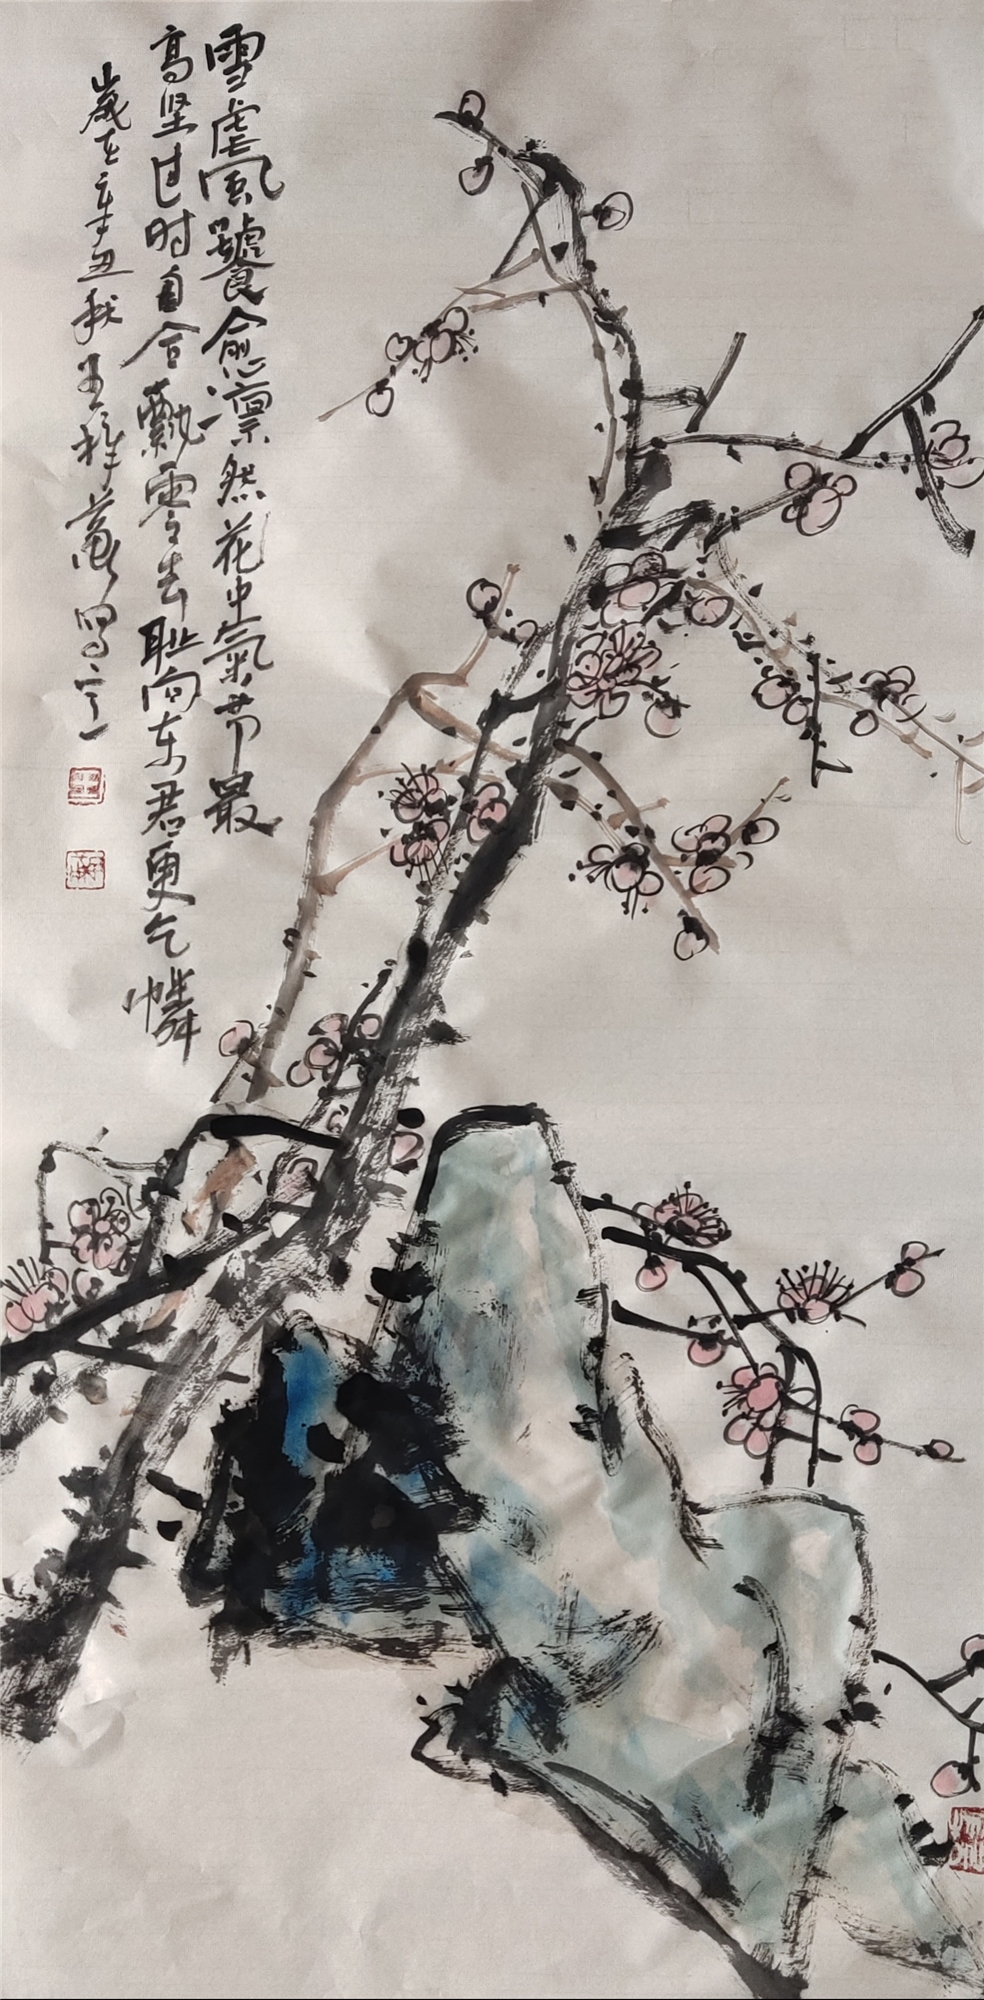 雪虐風饕愈凛然花中氣节最
高坚过时自合飘零去耻向东君更乞憐
歲在辛丑秋王祥